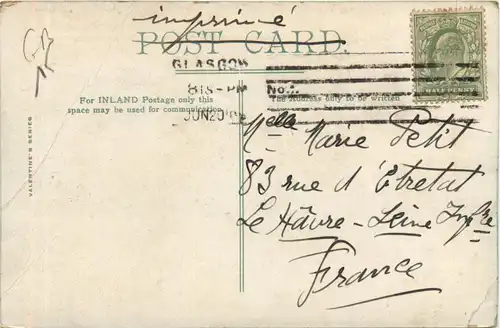 imprimé
POST CARD.
GLASGOW
8 15 - PM
No.
JUN 20
HALF PENNY
For INLAND Postage only this
space may be used for communication
The Address only to be written
VALENTINE'S SERIES
Melle Marie Petit
83 rue d'Étretat
Le Hâvre - Seine Infre
France